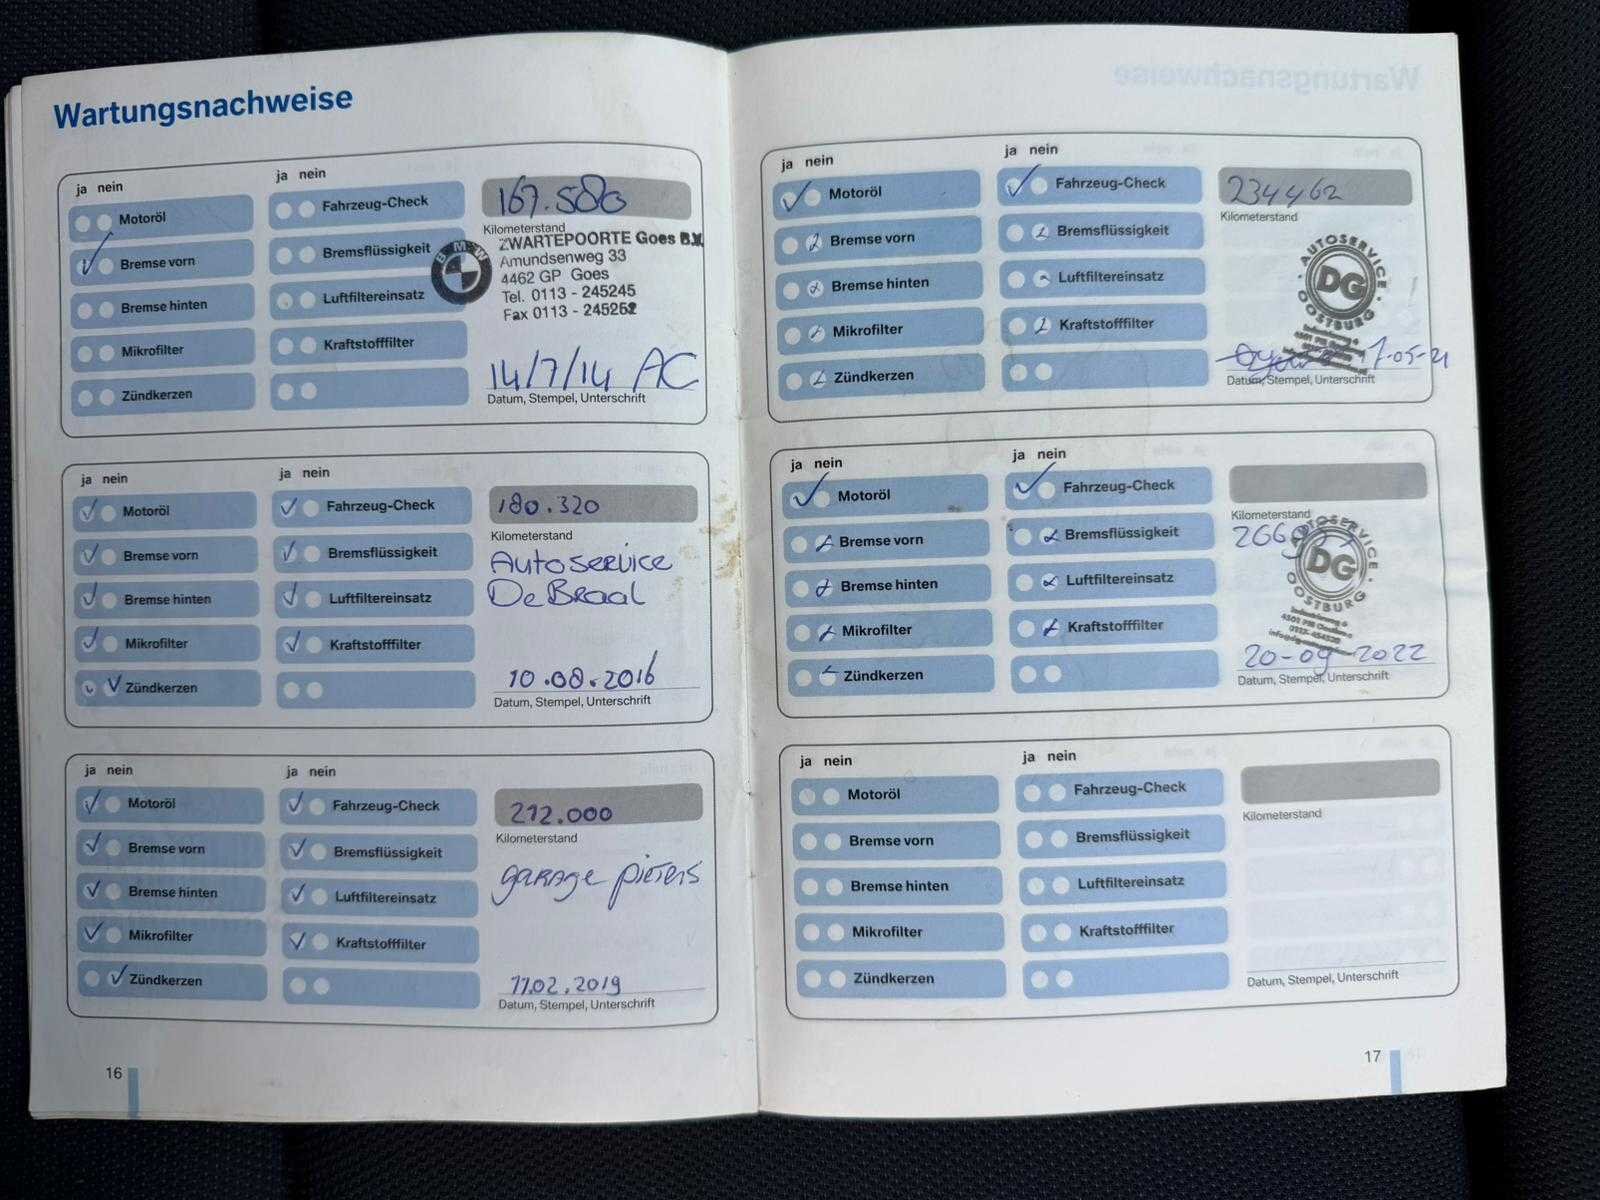 Wartungsnachweise
ja nein
ja nein
Motoröl
Bremse vorn
Bremse hinten
Mikrofilter
Zündkerzen
Fahrzeug-Check
Bremsflüssigkeit
Luftfiltereinsatz
Kraftstofffilter
167.580
Kilometerstand
BMW
ZWARTEPOORTE Goes B.V.
Amundsenweg 33
4462 GP Goes
Tel. 0113 - 245245
Fax 0113 - 245252
14/7/14 AC
Datum, Stempel, Unterschrift
ja nein
ja nein
Motoröl
Bremse vorn
Bremse hinten
Mikrofilter
Zündkerzen
Fahrzeug-Check
Bremsflüssigkeit
Luftfiltereinsatz
Kraftstofffilter
180.320
Kilometerstand
Autoservice
De Braal
10.08.2016
Datum, Stempel, Unterschrift
ja nein
ja nein
Motoröl
Bremse vorn
Bremse hinten
Mikrofilter
Zündkerzen
Fahrzeug-Check
Bremsflüssigkeit
Luftfiltereinsatz
Kraftstofffilter
212.000
Kilometerstand
garage pieters
11.02.2019
Datum, Stempel, Unterschrift
16
ja nein
ja nein
Motoröl
Bremse vorn
Bremse hinten
Mikrofilter
Zündkerzen
Fahrzeug-Check
Bremsflüssigkeit
Luftfiltereinsatz
Kraftstofffilter
234462
Kilometerstand
AUTOSERVICE
DG
OOSTBURG
1-05-21
Datum, Stempel, Unterschrift
ja nein
ja nein
Motoröl
Bremse vorn
Bremse hinten
Mikrofilter
Zündkerzen
Fahrzeug-Check
Bremsflüssigkeit
Luftfiltereinsatz
Kraftstofffilter
Kilometerstand
AUTOSERVICE
DG
OOSTBURG
20-09-2022
Datum, Stempel, Unterschrift
ja nein
ja nein
Motoröl
Bremse vorn
Bremse hinten
Mikrofilter
Zündkerzen
Fahrzeug-Check
Bremsflüssigkeit
Luftfiltereinsatz
Kraftstofffilter
Kilometerstand
Datum, Stempel, Unterschrift
17